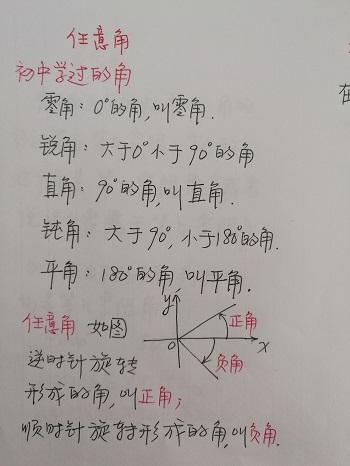 任意角
初中学过的角
零角：0°的角，叫零角．
锐角：大于0°小于90°的角
直角：90°的角，叫直角．
钝角：大于90°，小于180°的角．
平角：180°的角，叫平角．
任意角 如图
y
正角
负角
O
x
逆时针旋转
形成的角，叫正角；
顺时针旋转形成的角，叫负角．
在